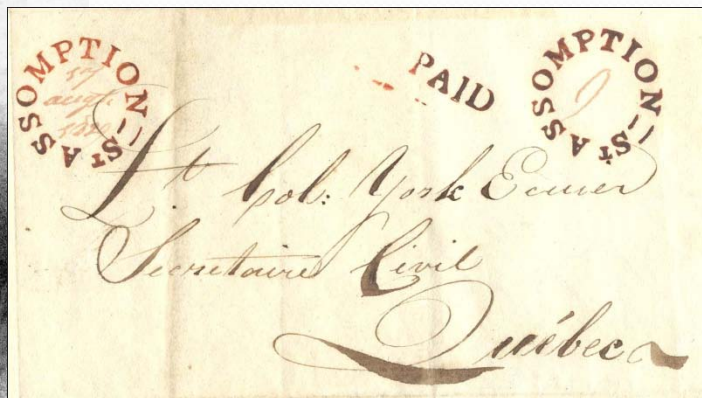 ASSOMPTION-St
17
augt.
PAID
ASSOMPTION-St
9
Lt Col: York Ecuier
Secretaire Civil
Québec